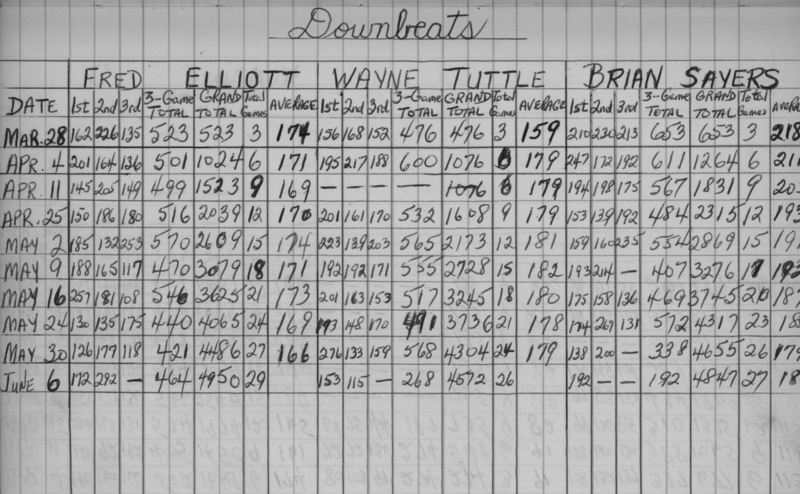 Downbeats
FRED ELLIOTT WAYNE TUTTLE BRIAN SAYERS
DATE 1st 2nd 3rd 3-Game TOTAL GRAND TOTAL Total Games AVERAGE 1st 2nd 3rd 3-Game TOTAL GRAND TOTAL Total Games AVERAGE 1st 2nd 3rd 3-Game TOTAL GRAND TOTAL Total Games AVERA
MAR. 28 162 226 135 523 523 3 174 156 168 152 476 476 3 159 210 230 213 653 653 3 218
APR. 4 201 164 136 501 1024 6 171 195 217 188 600 1076 6 179 247 172 192 611 1264 6 211
APR. 11 145 205 149 499 1523 9 169 — — — — 1076 6 179 194 198 175 567 1831 9 20
APR. 25 150 186 180 516 2039 12 170 201 161 170 532 1608 9 179 153 139 192 484 2315 12 193
MAY 2 185 132 253 570 2609 15 174 223 139 203 565 2173 12 181 159 160 235 554 2869 15 19
MAY 9 188 165 117 470 3079 18 171 192 192 171 555 2728 15 182 193 214 — 407 3276 17 192
MAY 16 257 181 108 546 3625 21 173 201 163 153 517 3245 18 180 175 158 136 469 3745 20 187
MAY 24 130 135 175 440 4065 24 169 193 148 170 491 3736 21 178 174 267 131 572 4317 23 18
MAY 30 126 177 118 421 4486 27 166 276 133 159 568 4304 24 179 138 200 — 338 4655 26 179
JUNE 6 172 292 — 464 4950 29 153 115 — 268 4572 26 192 — — 192 4847 27 18